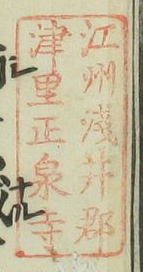 江州淺井郡
津里正泉寺